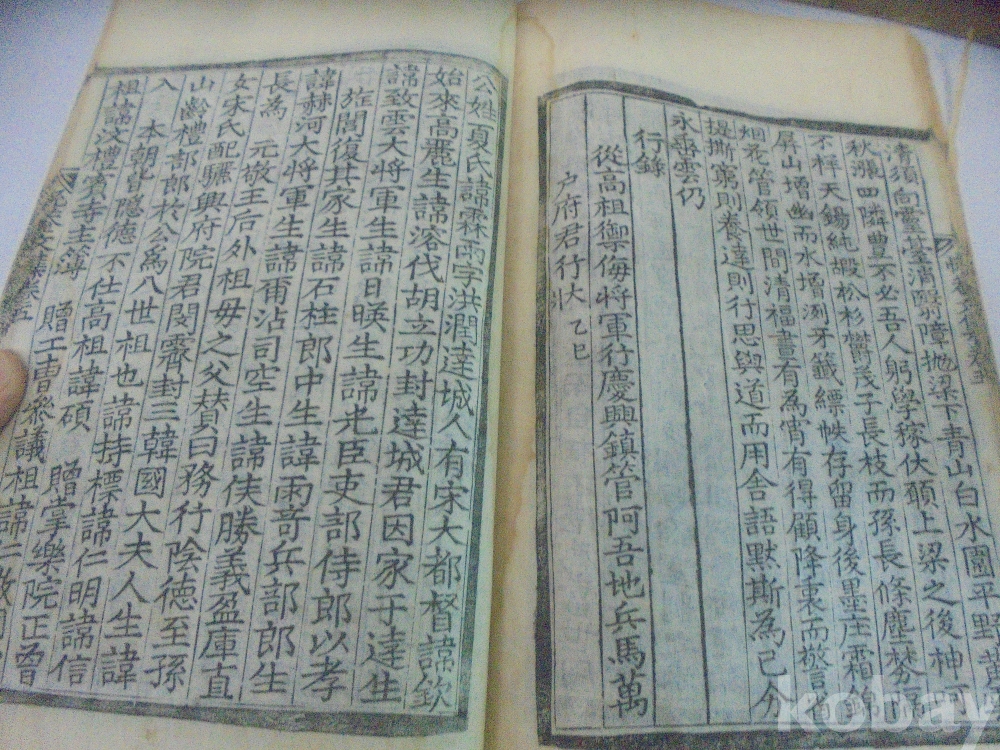 清須向靈臺消翳障拋梁下青山白水圍平野黃
秋漲四隣豊不必吾人躬學稼伏願上梁之後神
不祥天錫純嘏松杉欝茂子長枝而孫長條塵棼
屛山增幽而水增冽牙籤縹帙存留身後墨庄霜
烟花管領世間淸福晝有爲宵有得顧降衷而警省
提撕窮則養達則行思與道而用舍語默斯爲己分
永垂雲仍
行錄
從高祖禦侮將軍行慶興鎭管阿吾地兵馬萬
户府君行狀 乙巳
公姓夏氏諱霖雨字洪潤達城人有宋大都督諱欽
始來高麗生諱溶代胡立功封達城君因家于達生
諱致雲大將軍生諱日暎生諱光臣吏部侍郎以孝
旌閭復其家生諱石柱郎中生諱雨奇兵部郎生
諱赫河大將軍生諱爾沾司空生諱俟勝義盈庫直
長爲 元敬王后外祖母之父贊曰務行陰德至孫
女宋氏配驪興府院君閔霽封三韓國大夫人生諱
山齡禮部郎於公爲八世祖也諱持標諱仁明諱信
入 本朝皆隱德不仕高祖諱碩 贈掌樂院正曾
祖諱汶禮賓寺主簿 贈工曹參議祖諱仁
kobay